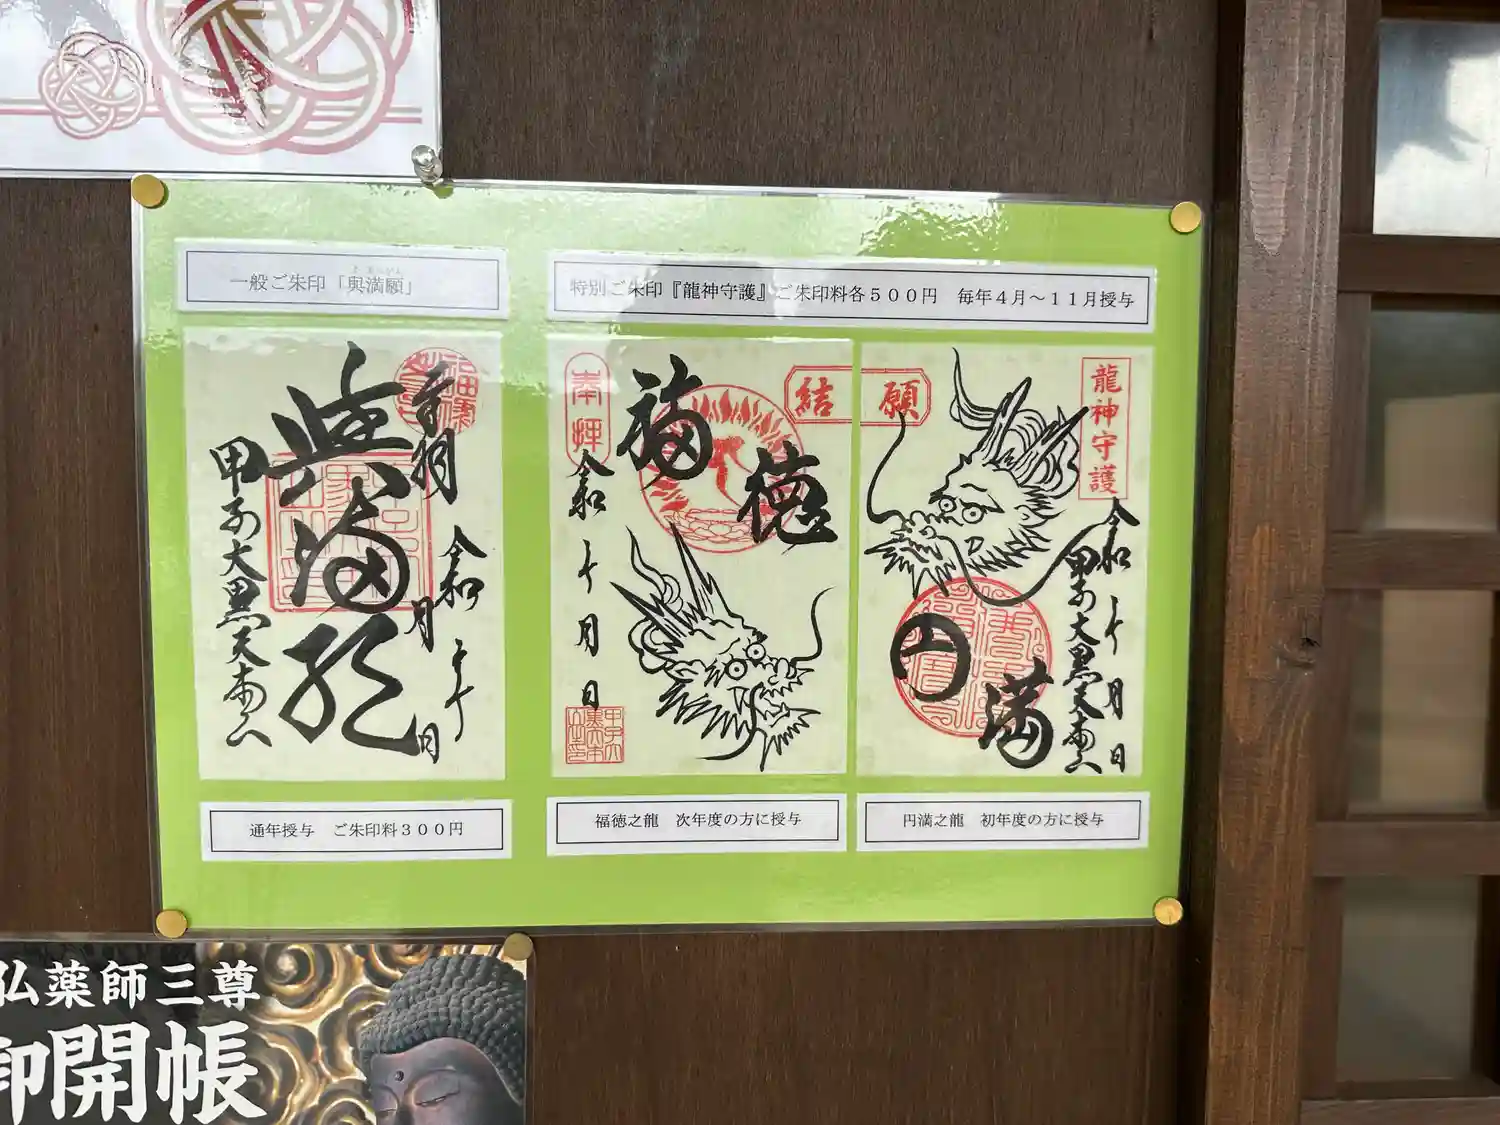 一般ご朱印「與満願」
特別ご朱印『龍神守護』ご朱印料各５００円　毎年４月～１１月授与
令和
月
日
與満願
甲子大黒天本山
奉拝
福徳
令和
月
日
結願
龍神守護
円満
令和
月
日
甲子大黒天本山
通年授与　ご朱印料３００円
福徳之龍　次年度の方に授与
円満之龍　初年度の方に授与
仏薬師三尊
御開帳